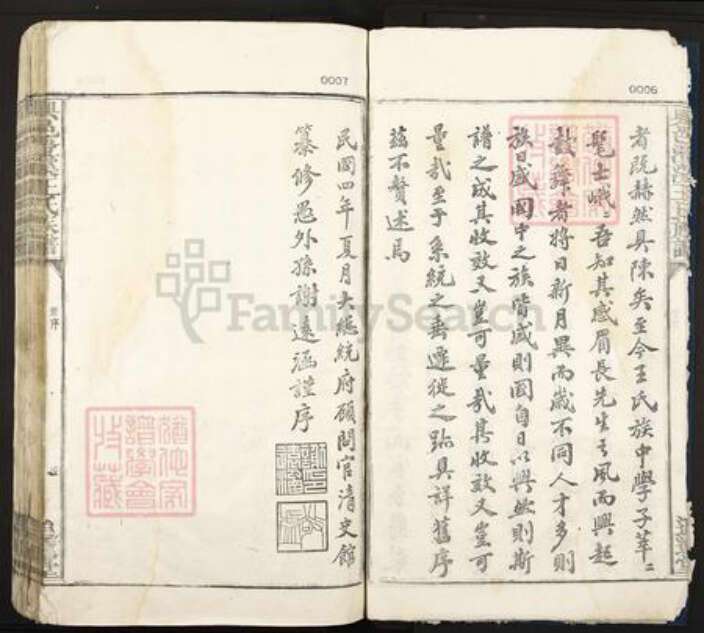 0006
者既赫然具陳矣至今王氏族中學子莘〻
髦士峨〻吾知其感眉長先生之風而興起
鼓舞者將日新月異而歲不同人才多則
族日盛國中之族皆盛則國自日以興然則斯
譜之成其收效又豈可量哉其收效又豈可
量哉至于系統之垂遷徙之跡具詳舊序
茲不贅述焉
0007
民國四年夏月大總統府顧問官清史館
纂修愚外孫謝遠涵謹序
FamilySearch